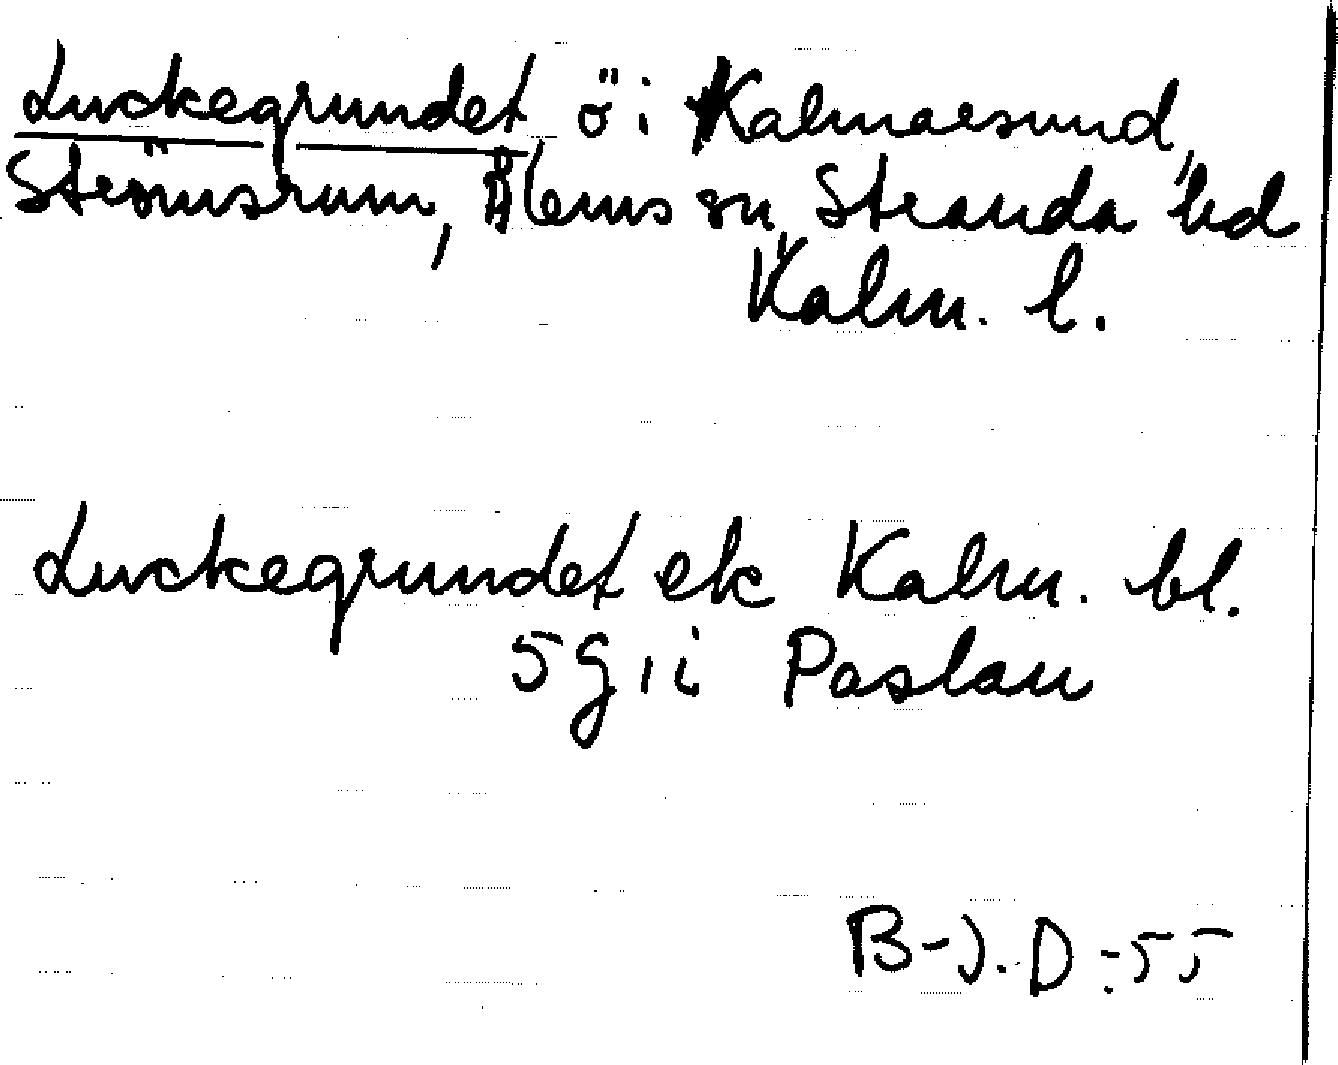 Luckegrundet ö i Kalmarsund,
Strömsrum, Ålems sn, Stranda hd
Kalm. l.
Luckegrundet ek Kalm. bl.
5 g i i Paslau
B-J. D :55